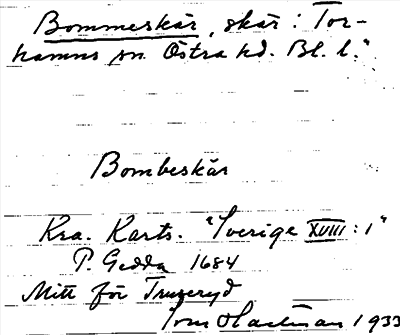 Bommeskär, skär: Tor-
hamns sn. Östra hd. Bl. l."
Bombeskär
Kra. Karts. "Sverige XVIII:1"
P. Gedda 1684
Mitt för Truseryd
1933